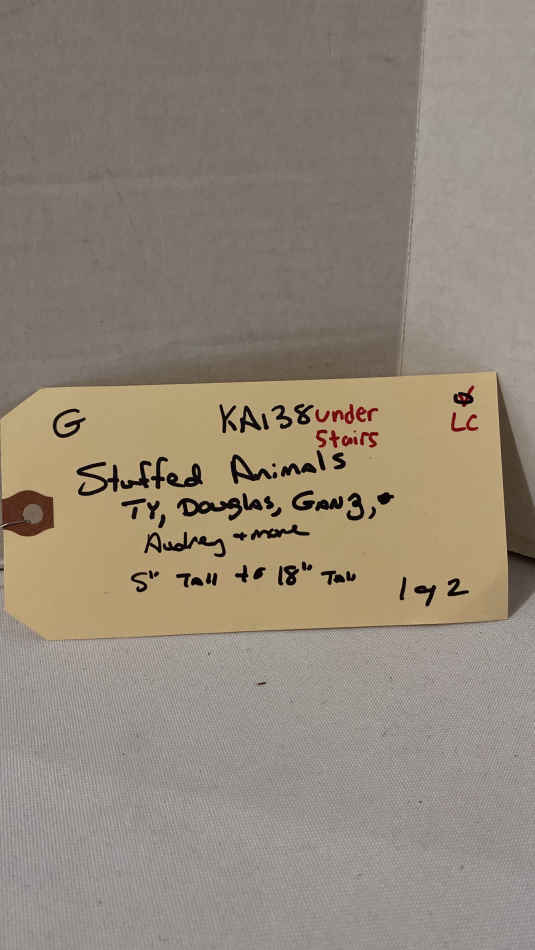 G KA138 under LC
Stairs
Stuffed Animals
TY, Douglas, GANZ,
Audrey + more
5" Tall to 18" Tall
1 of 2